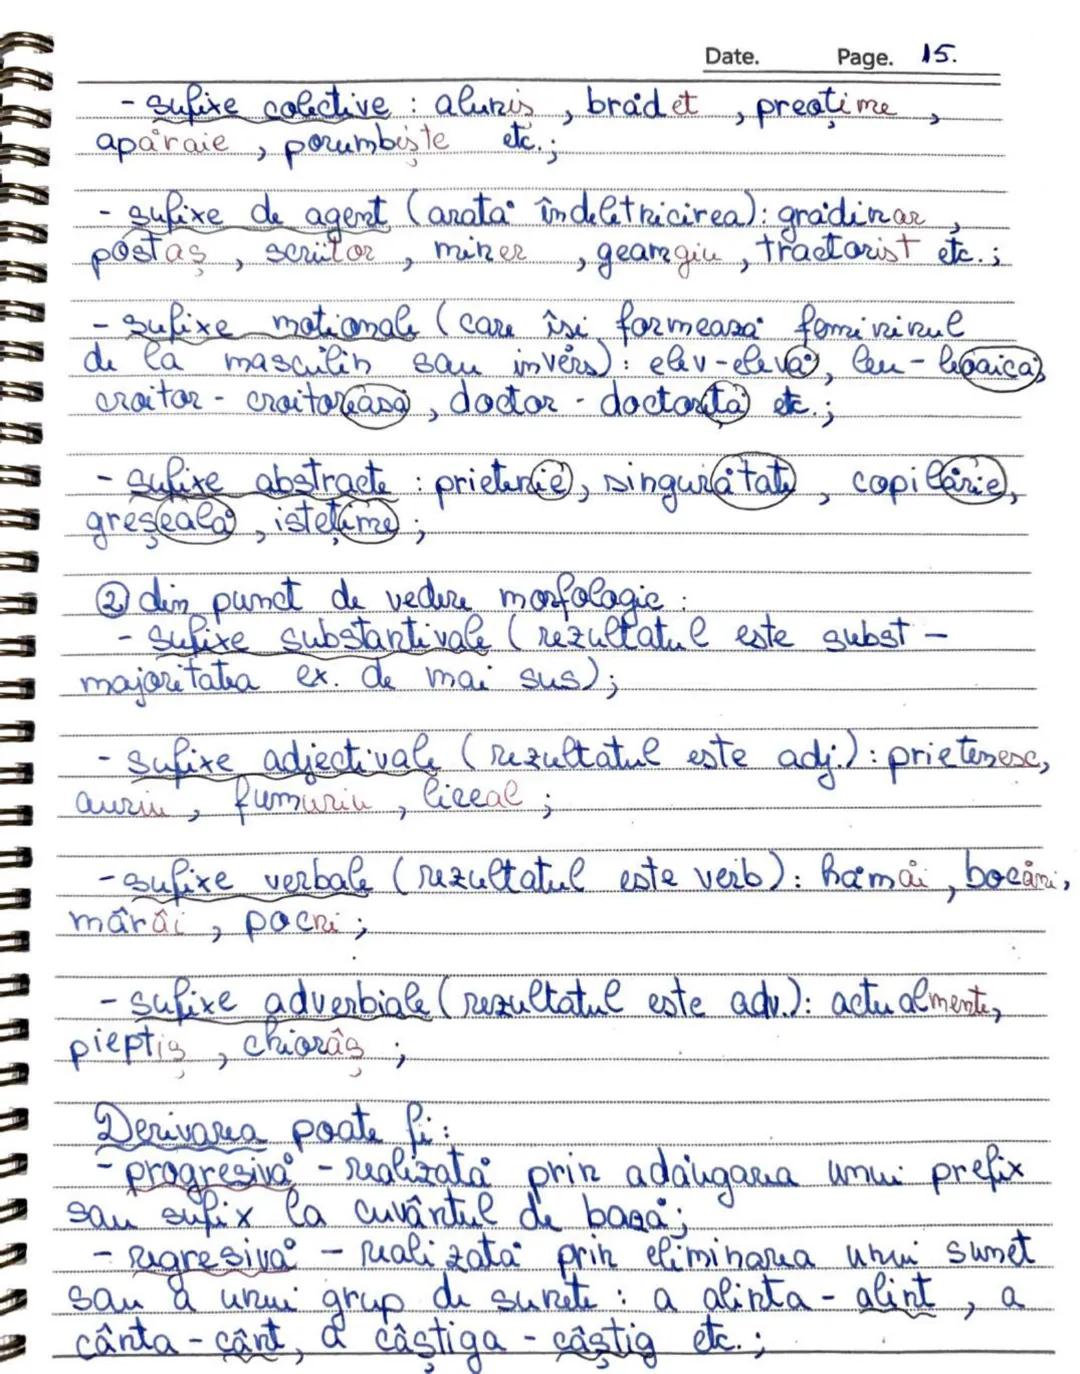 Date. Page. 15.
- sufixe colective : aluniș, brădet, preoțime,
apăraie, porumbiște etc.;
- sufixe de agent (arată îndeletnicirea): grădinar,
poștaș, scriitor, miner, geamgiu, tractorist etc.;
- sufixe moționale (care își formează femininul
de la masculin sau invers): elev-elevă, leu - leoaică,
croitor - croitoreasă, doctor - doctoriță etc.;
- sufixe abstracte : prietenie, singurătate, copilărie,
greșeală, istețime;
② din punct de vedere morfologic:
- sufixe substantivale (rezultatul este subst -
majoritatea ex. de mai sus);
- sufixe adjectivale (rezultatul este adj.): prietenesc,
auriu, fumuriu, liceal;
- sufixe verbale (rezultatul este verb): hămăi, bocăni,
mârâi, pocni;
- sufixe adverbiale (rezultatul este adv.): actualmente,
pieptiș, chiorâș;
Derivarea poate fi:
- progresivă - realizată prin adăugarea unui prefix
sau sufix la cuvântul de bază;
- regresivă - realizată prin eliminarea unui sunet
sau a unui grup de sunete : a alinta - alint, a
cânta - cânt, a câștiga - câștig etc.;